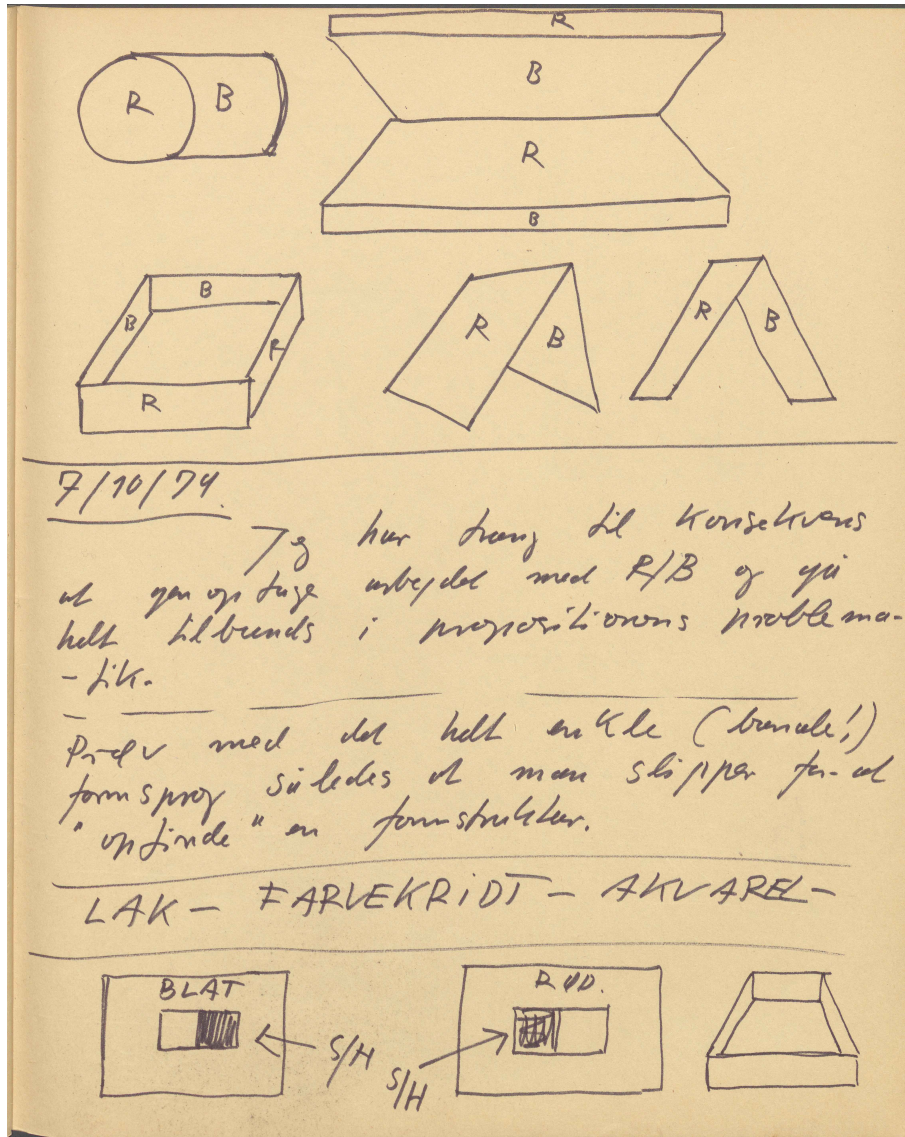 R
R B
B
R
B
B
B
R
R
R
B
R
B
7/10/74.
Jeg har trang til konsekvens
at genoptage arbejdet med R/B og gå
helt tilbunds i propositionens problema-
-tik.
Prøv med det helt enkle (banale!)
formsprog således at man slipper for at
"opfinde" en formstruktur.
LAK - FARVEKRiDT - AKVAREL -
BLAT
RØD.
S/H
S/H